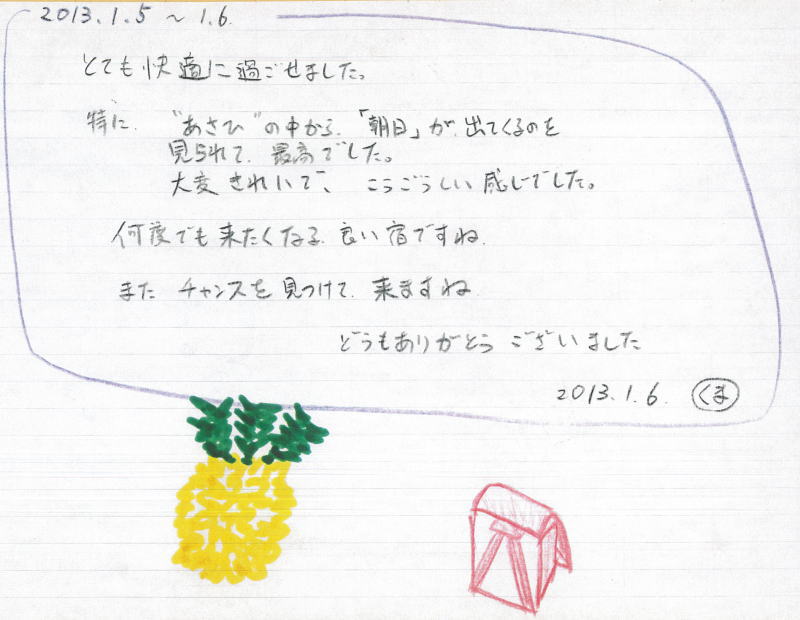 2013.1.5 〜 1.6.
とても快適に過ごせました。
特に、"あさひ"の中から、「朝日」が、出てくるのを
見られて、最高でした。
大変きれいで、こうごうしい感じでした。
何度でも来たくなる、良い宿ですね。
また チャンスを見つけて、来ますね
どうもありがとう ございました
2013.1.6. くま